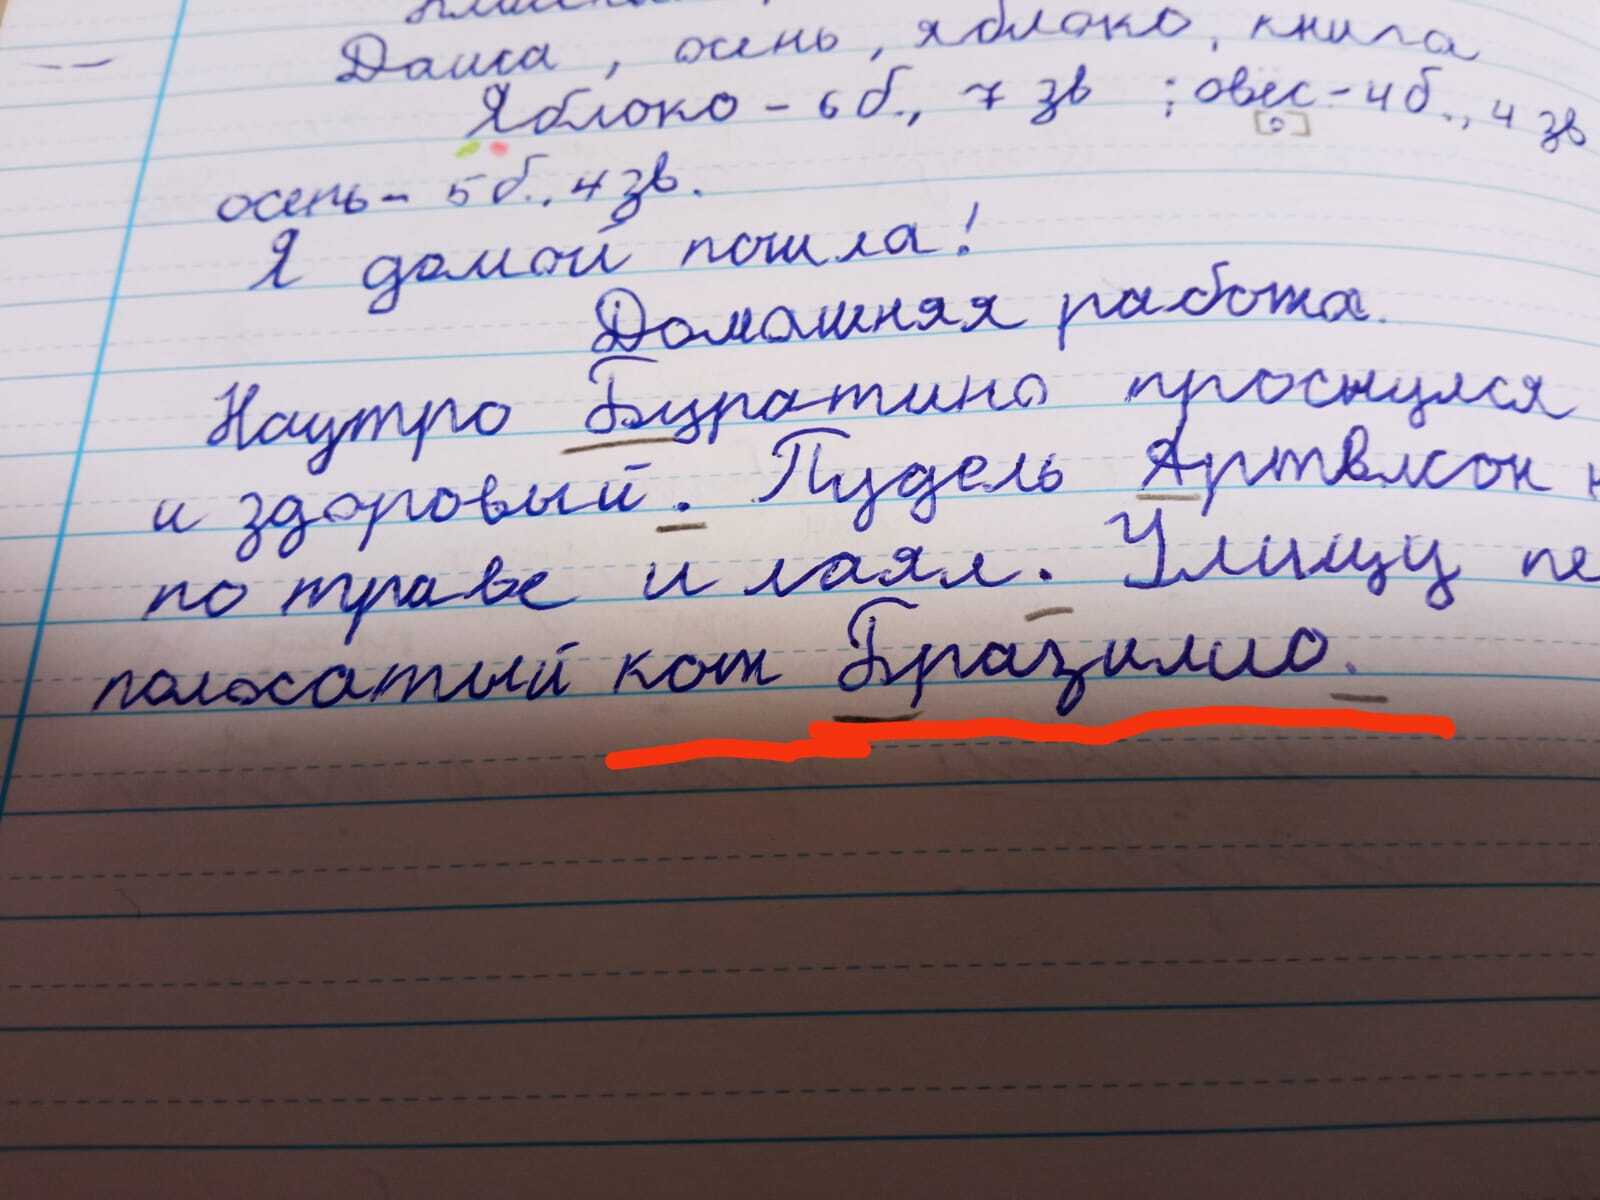 Даша, осень, яблоко, книга
Яблоко - 6 б., 7 зв ; овёс - 4 б., 4 зв
[о]
осень - 5 б., 4 зв.
Я домой пошла!
Домашняя работа.
Наутро Буратино проснулся
и здоровый. Пудель Артвмсон
по траве и лаял. Улицу
полосатый кот Бразилио.